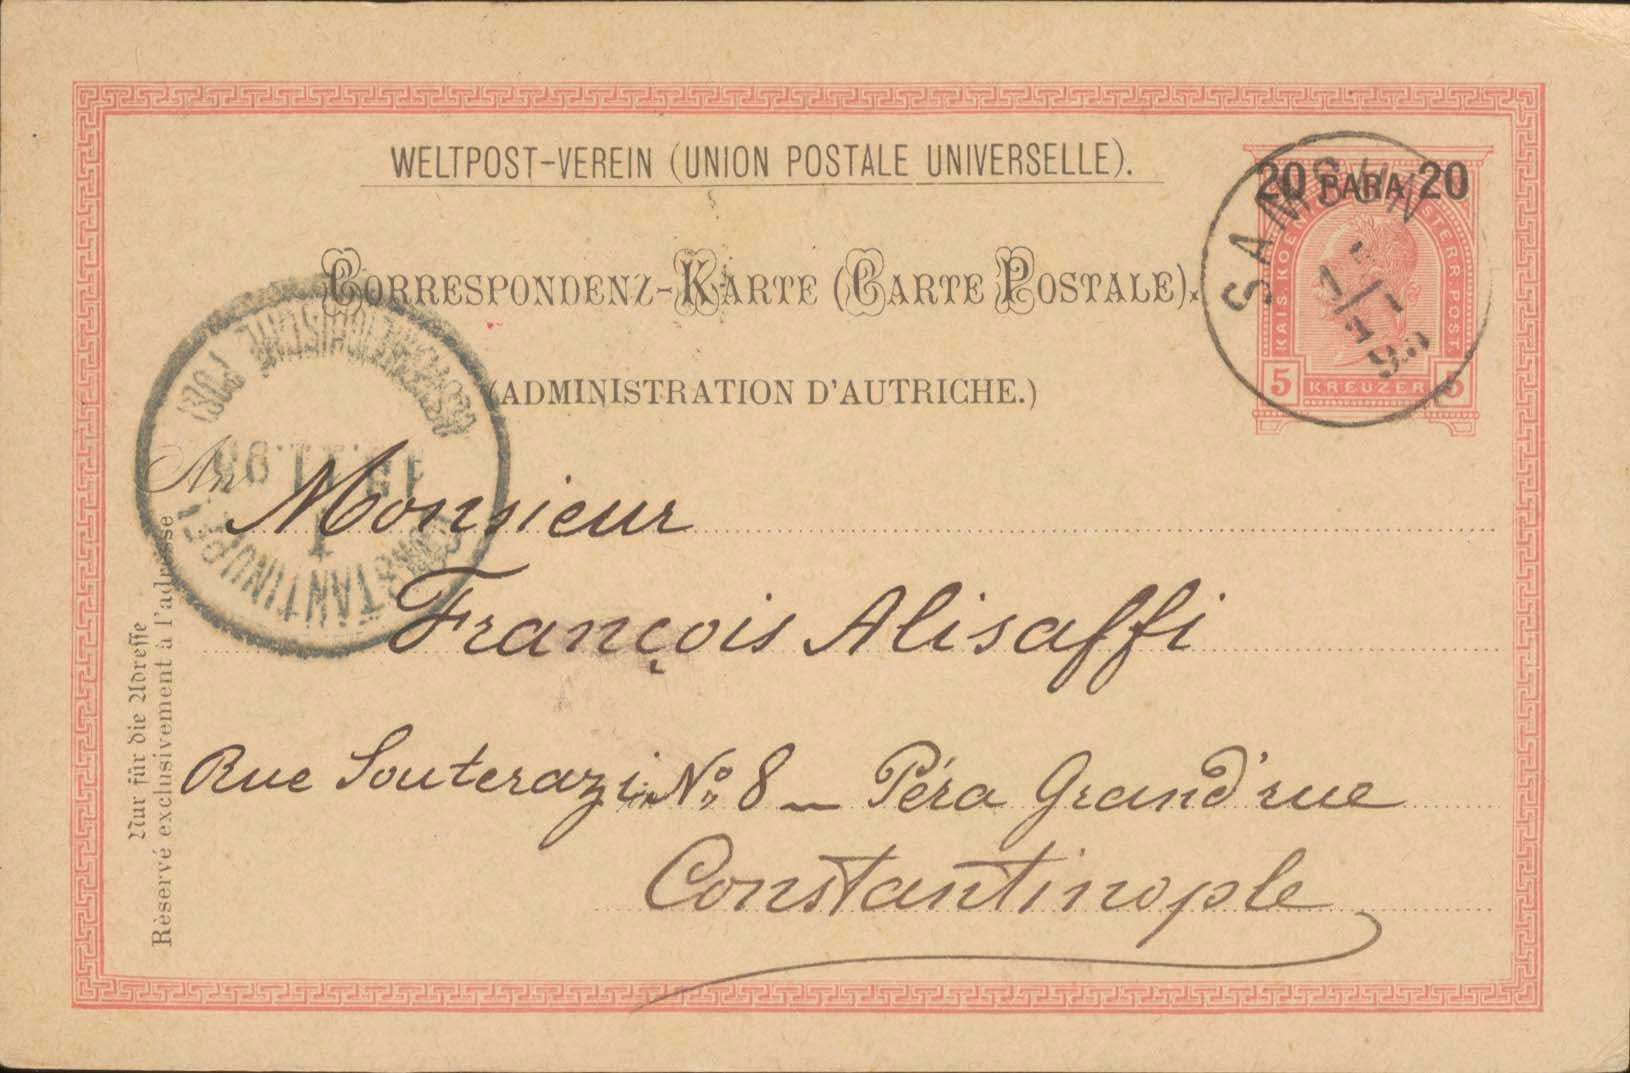 WELTPOST-VEREIN (UNION POSTALE UNIVERSELLE).
20 PARA 20
SAMSUN
KAIS. KOENIGL. OESTERR. POST
5 KREUZER 5
CORRESPONDENZ-KARTE (CARTE POSTALE).
(ADMINISTRATION D'AUTRICHE.)
OESTERREICHISCHE POST
CONSTANTINOPEL
An Monsieur
François Alisaffi
Rue Souterazi No 8 — Péra Grand'rue
Constantinople
Nur für die Adresse
Réservé exclusivement à l'adresse